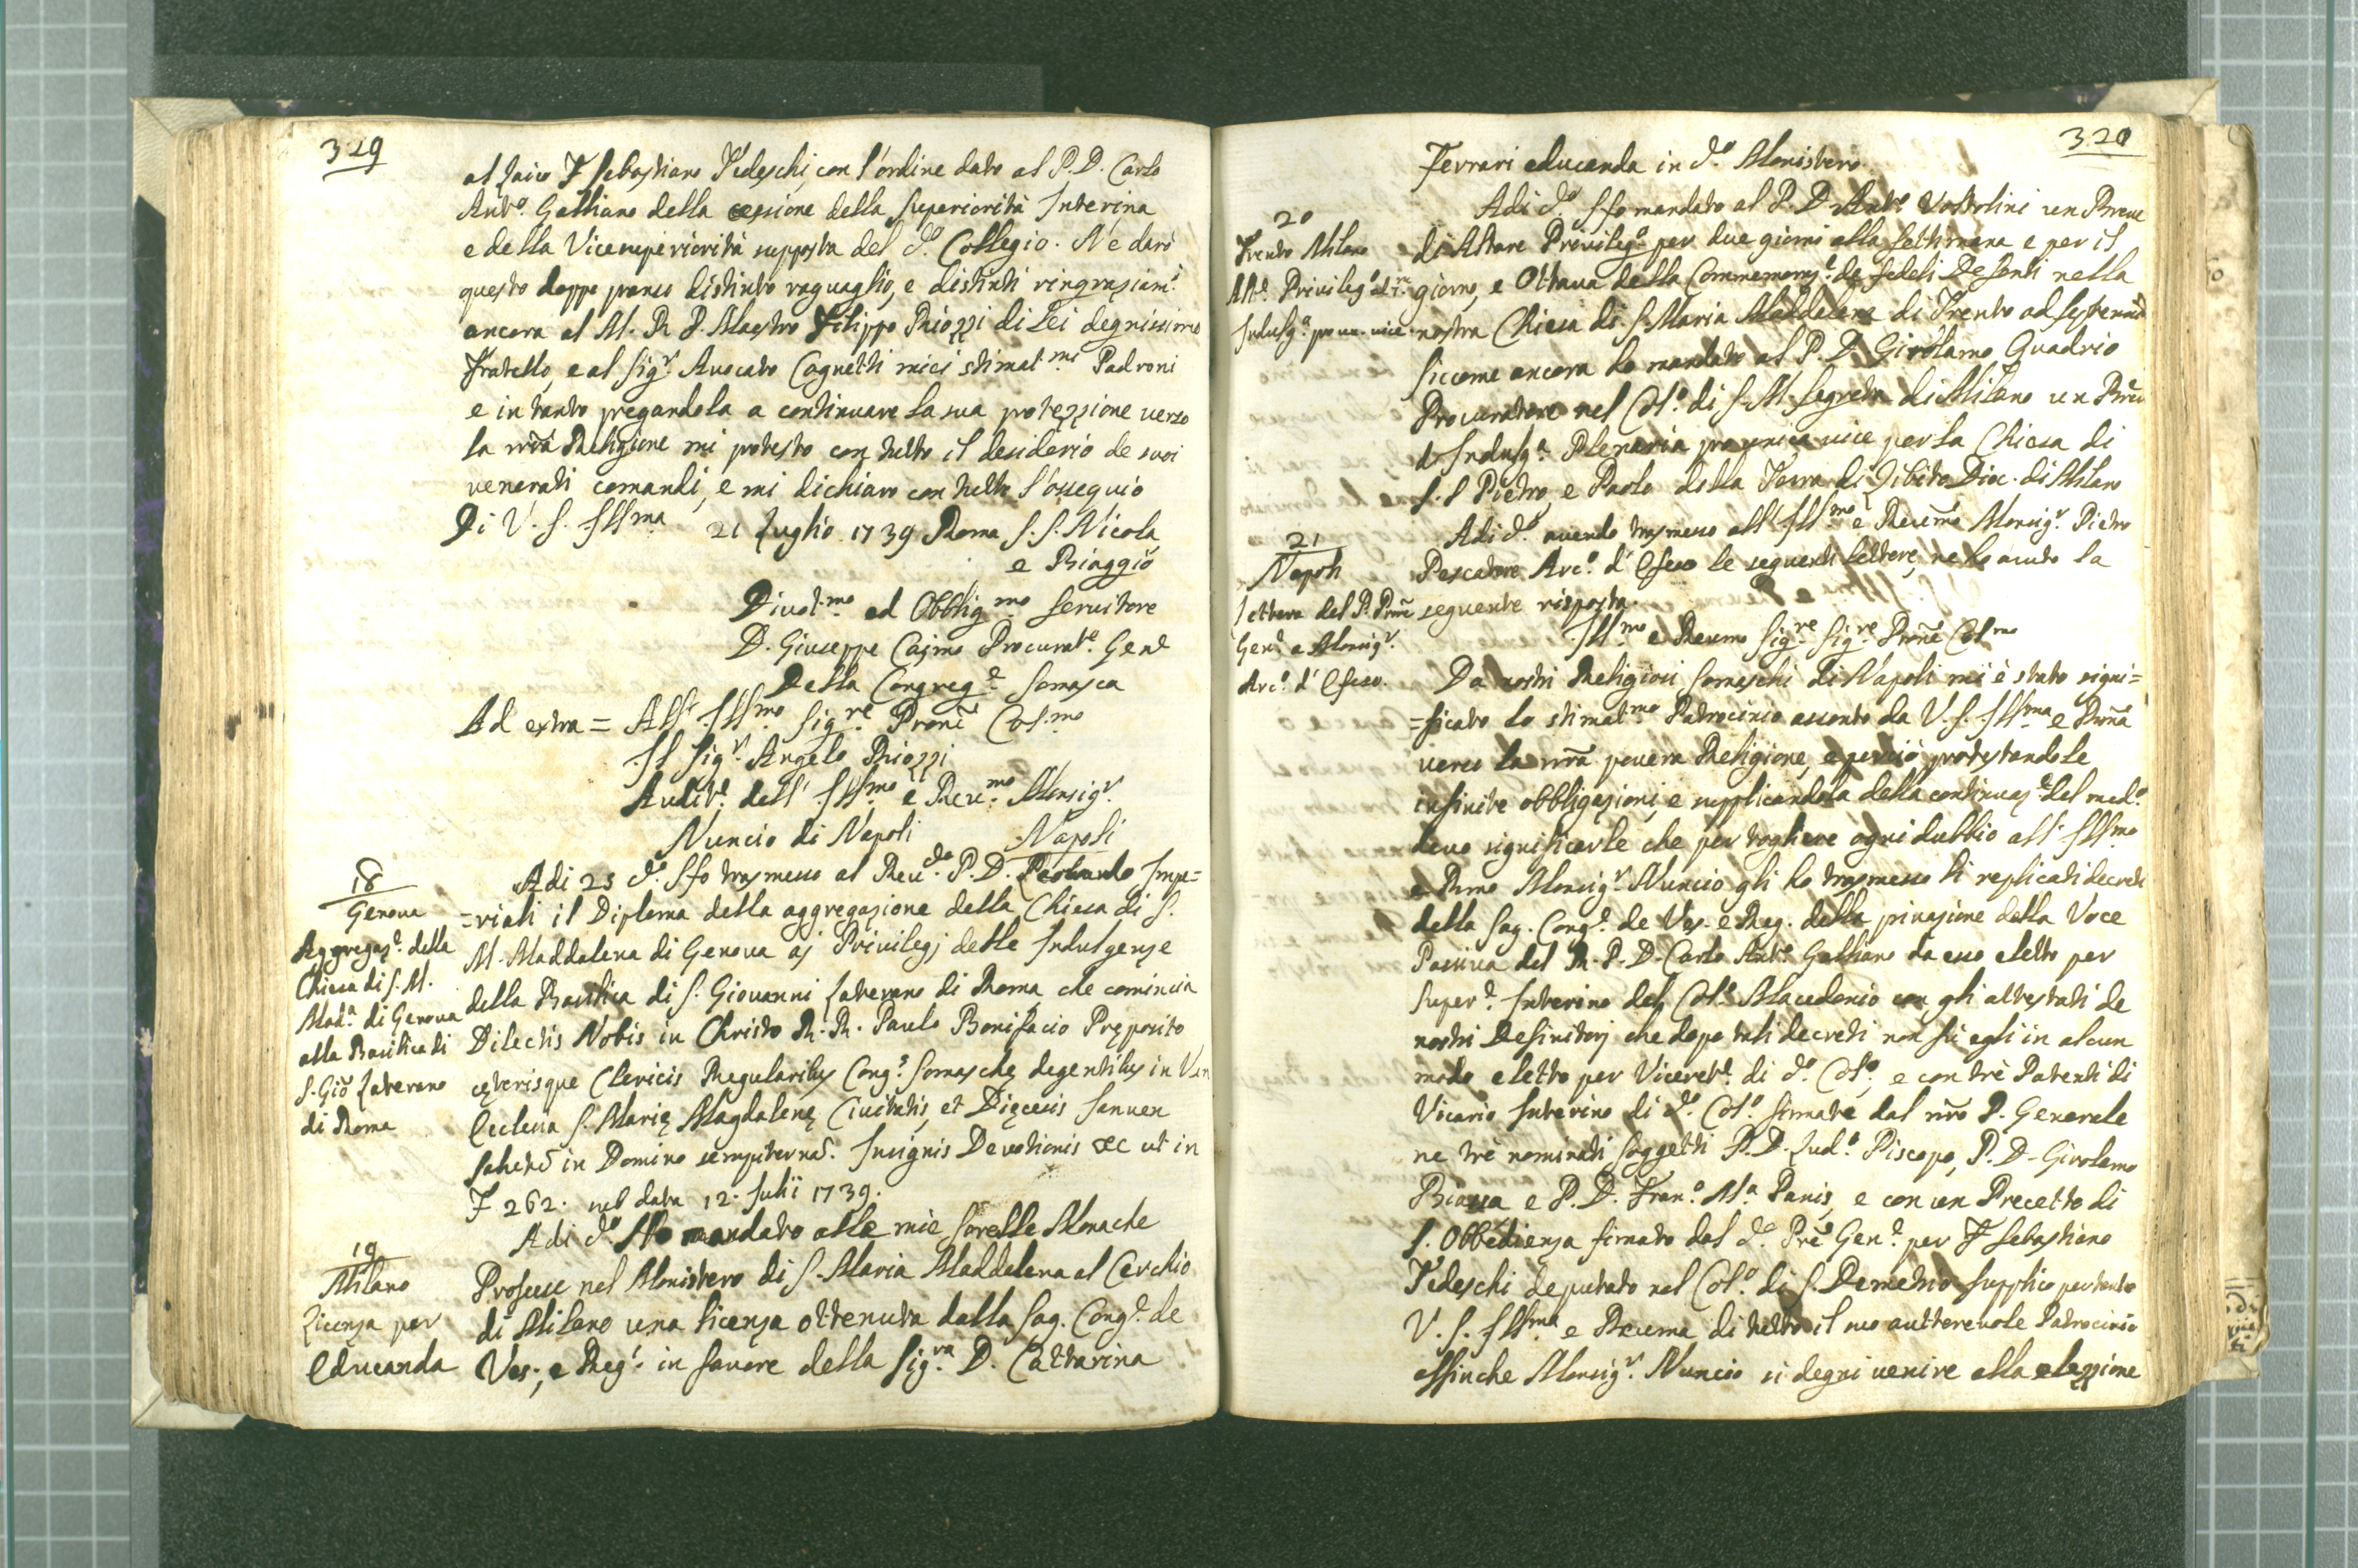 319
al Laico F. Sebastiano Tedeschi, con l'ordine dato al P. D. Carlo
Ant.º Galliano della cessione della Superiorità Interina
e della Vicesuperiorità supposta del d.º Collegio. Ne darò
questo doppo pranso distinto raguaglio, e distinti ringraziam.ti
ancora al M. R. P. Maestro Filippo Riozzi di Lei degnissimo
Fratello, e al Sig.r Avocato Cagnetti miei stimat.mi Padroni
e in tanto pregandola a continuare la sua protezzione verso
la nrã Religione mi protesto con tutto il desiderio de suoi
venerati comandi, e mi dichiaro con tutto l'ossequio
Di V. S. Ill.ma 21 Luglio 1739 Roma S. S. Nicola
e Biaggio
Divot.mo ed Obblig.mo Servitore
D. Giuseppe Caimo Procurat.e Gen.e
Della Congreg.e Somasca
Ad extra = All' Ill.mo Sig.re Pronẽ Col.mo
Il Sig.r Angelo Riozzi
Audit.e dell' Ill.mo e Rev.mo Monsig.r
Nuncio di Napoli Napoli
18
Genova
Aggregaz.e della
Chiesa di S. M.
Mad.a di Genova
alla Basilica di
S. Giõ Laterano
di Roma
Adi 25 d.º Ifo trasmesso al Rev.do P. D. Impe=
=riali il Diploma della aggregazione della Chiesa di S.
M. Maddalena di Genova aj Privilegj delle Indulgenze
della Basilica di S. Giovanni Laterano di Roma che comincia
Dilectis Nobis in Christo R. R. Paulo Bonifacio Pręposito
cęterisque Clericis Regularibus Cong.s Somaschę degentibus in Ven
Ecclesia S. Marię Magdalenę Civitatis, et Dięcesis Januen
Salutẽ in Domino sempiternã. Insignis Devotionis &c ut in
F 262. sub data 12. Julii 1739.
19
Milano
Licenza per
Educanda
Adi d.º Ho mandato alle mie Sorelle Monache
Professe nel Monistero di S. Maria Maddalena al Cerchio
di Milano una licenza ottenuta dalla Sag. Cong.e de
Ves., e Reg.i in favore della Sig.ra D. Cattarina
320
Ferrari educanda in d.º Monistero.
20
Trento Milano
Alt.e Privileg.º
Indulg.a pro un. vice
Adi d.º Ifo mandato al P. D. Ant.º Vostolini un Breve
di Altare Privileg.º per due giorni alla settimana e per il
giorno, e Ottava della Commemoraz.e de fedeli Defonti nella
nostra Chiesa di S. Maria Maddalena di Trento ad Septenniũ
siccome ancora ho mandato al P. D. Girolamo Quadrio
Procuratore nel Col.º di S. M. Segreta di Milano un Breve
d'Indulg.a Plenaria pro unica vice per la Chiesa di
S. S. Pietro, e Paolo della Terra di Zibito Dioc. di Milano
21
Napoli
Lettera del P. Procũ
Gen.e a Monsig.r
Arc.º d'Efeso.
Adi d.º avendo trasmesso all' Ill.mo e Revmo Monsig.r Pietro
Pescatore Arc.º d'Efeso le seguenti lettere, ne ho avuto la
seguente risposta.
Ill.mo e Revmo Sig.re Sig.re Pronẽ Col.mo
Da nostri Religiosi Somaschi di Napoli mi è stato signi=
=ficato lo stimat.mo Patrocinio assonto da V. S. Ill.ma e Rmã
verso la nrã povera Religione, e perciò protestandole
infinite obbligazioni, e supplicandola della continuaz.e del med.º
devo significarle che per togliere ogni dubbio all' Ill.mo
e Rmo Monsig.r Nuncio gli ho trasmesso li replicati decreti
della Sag. Cong.e de Ves. e Reg. della privazione della Voce
Passiva del R. P. D. Carlo Ant.º Galliano da esso eletto per
Super.e Interino del Col.º Macedonio con gli attestati de
nostri Definitorj che dopo tali decreti non fù egli in alcun
modo eletto per Viceret.e di d.º Col.º, e con trè Patenti di
Vicario Interino di d.º Col.º firmate dal nrõ P. Generale
ne trè nominati soggetti P. D. Lud.º Piscopo, P. D. Girolamo
Biassa e P. D. Fran.º M.a Panis, e con un Precetto di
S. Obbedienza firmato dal d.º Prẽ Gen.e per F. Sebastiano
Tedeschi deputato nel Col.º di S. Demetrio supplico pertanto
V. S. Ill.ma e Revma di tutto il suo auttorevole Patrocinio
affinche Monsig.r Nuncio si degni venire alla elezzione